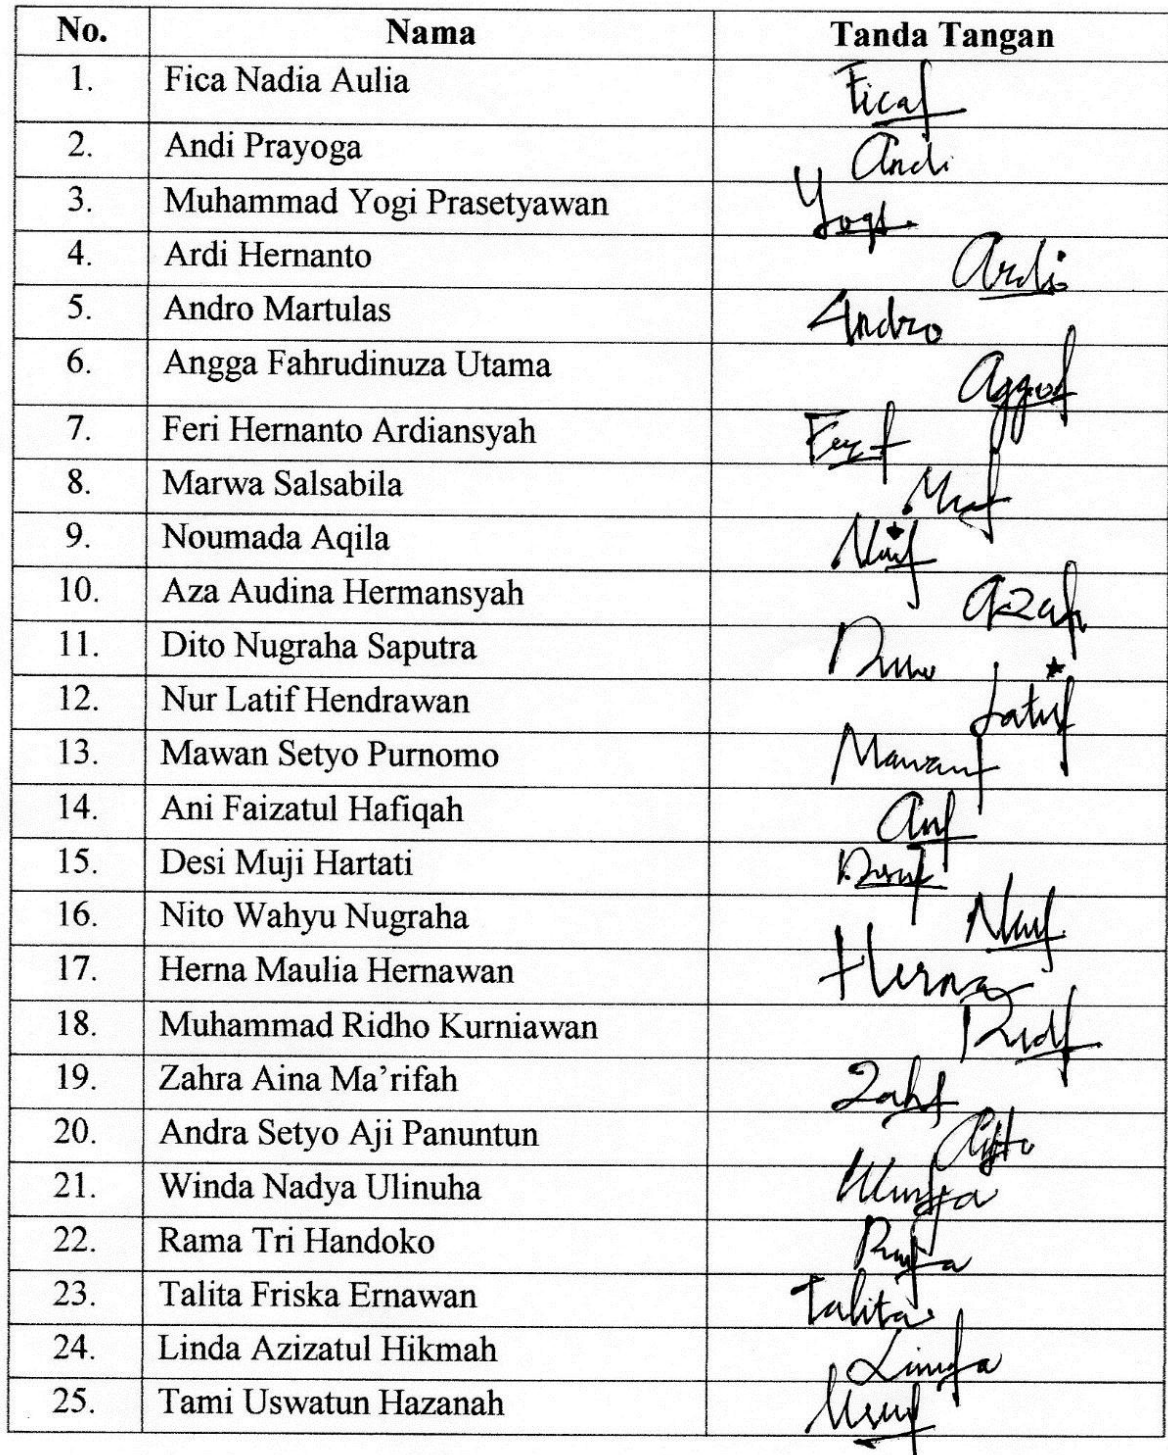 No. Nama Tanda Tangan
1. Fica Nadia Aulia Fica
2. Andi Prayoga Andi
3. Muhammad Yogi Prasetyawan Yogi
4. Ardi Hernanto Ardi
5. Andro Martulas Andro
6. Angga Fahrudinuza Utama
7. Feri Hernanto Ardiansyah
8. Marwa Salsabila
9. Noumada Aqila
10. Aza Audina Hermansyah Aza
11. Dito Nugraha Saputra
12. Nur Latif Hendrawan Latif
13. Mawan Setyo Purnomo Mawan
14. Ani Faizatul Hafiqah
15. Desi Muji Hartati
16. Nito Wahyu Nugraha
17. Herna Maulia Hernawan Herna
18. Muhammad Ridho Kurniawan
19. Zahra Aina Ma’rifah
20. Andra Setyo Aji Panuntun
21. Winda Nadya Ulinuha
22. Rama Tri Handoko
23. Talita Friska Ernawan Talita
24. Linda Azizatul Hikmah
25. Tami Uswatun Hazanah